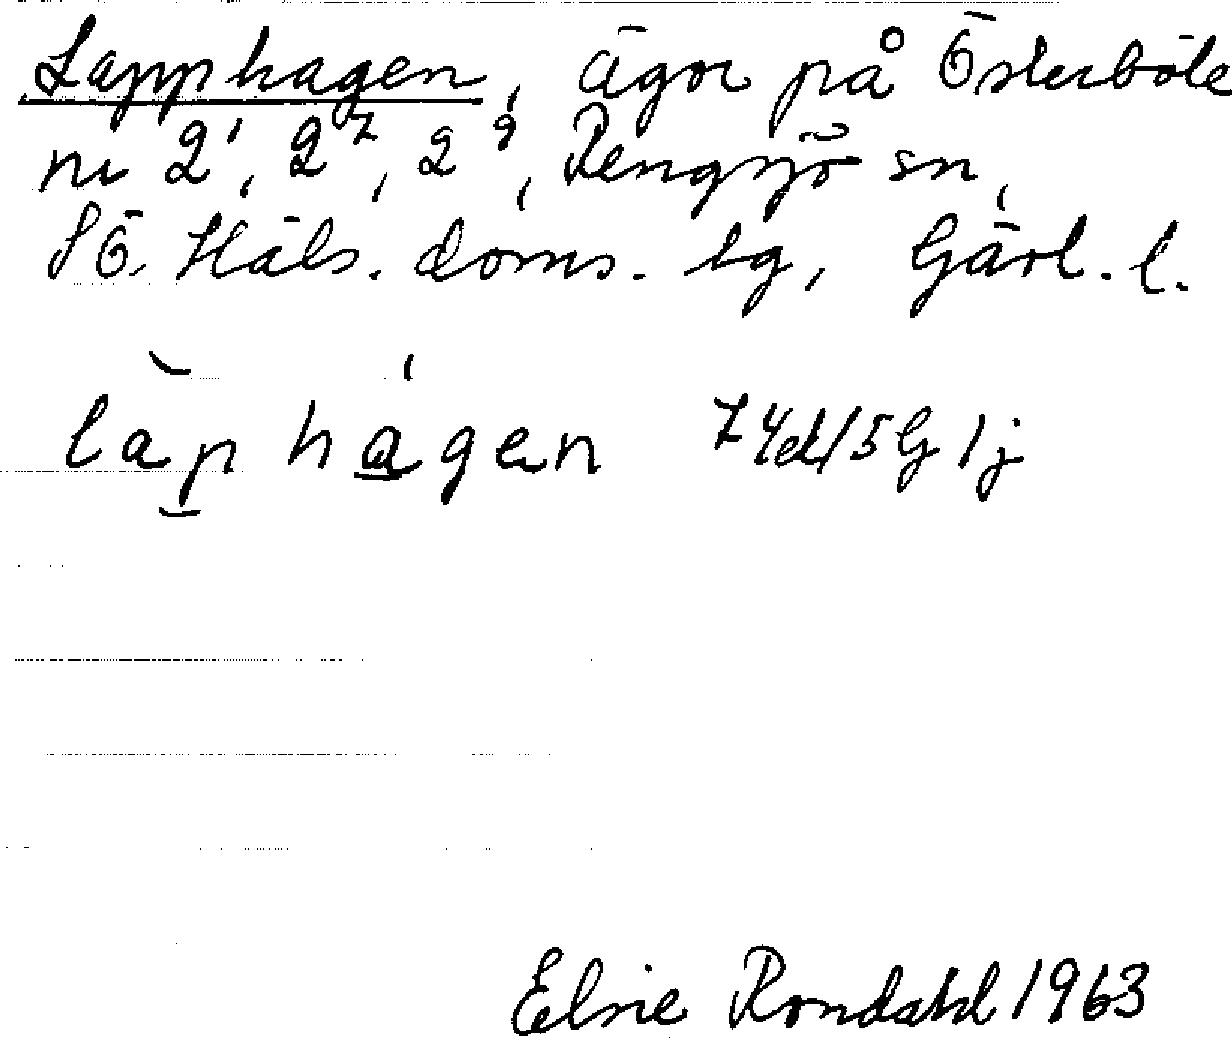 Lapphagen, ägor på Österböle
nr 2¹, 2⁷, 2⁹, Rengsjö sn,
SÖ. Häls. doms. tg, Gävl. l.
làp hágen 74d/5G1j
Elsie Rondahl 1963